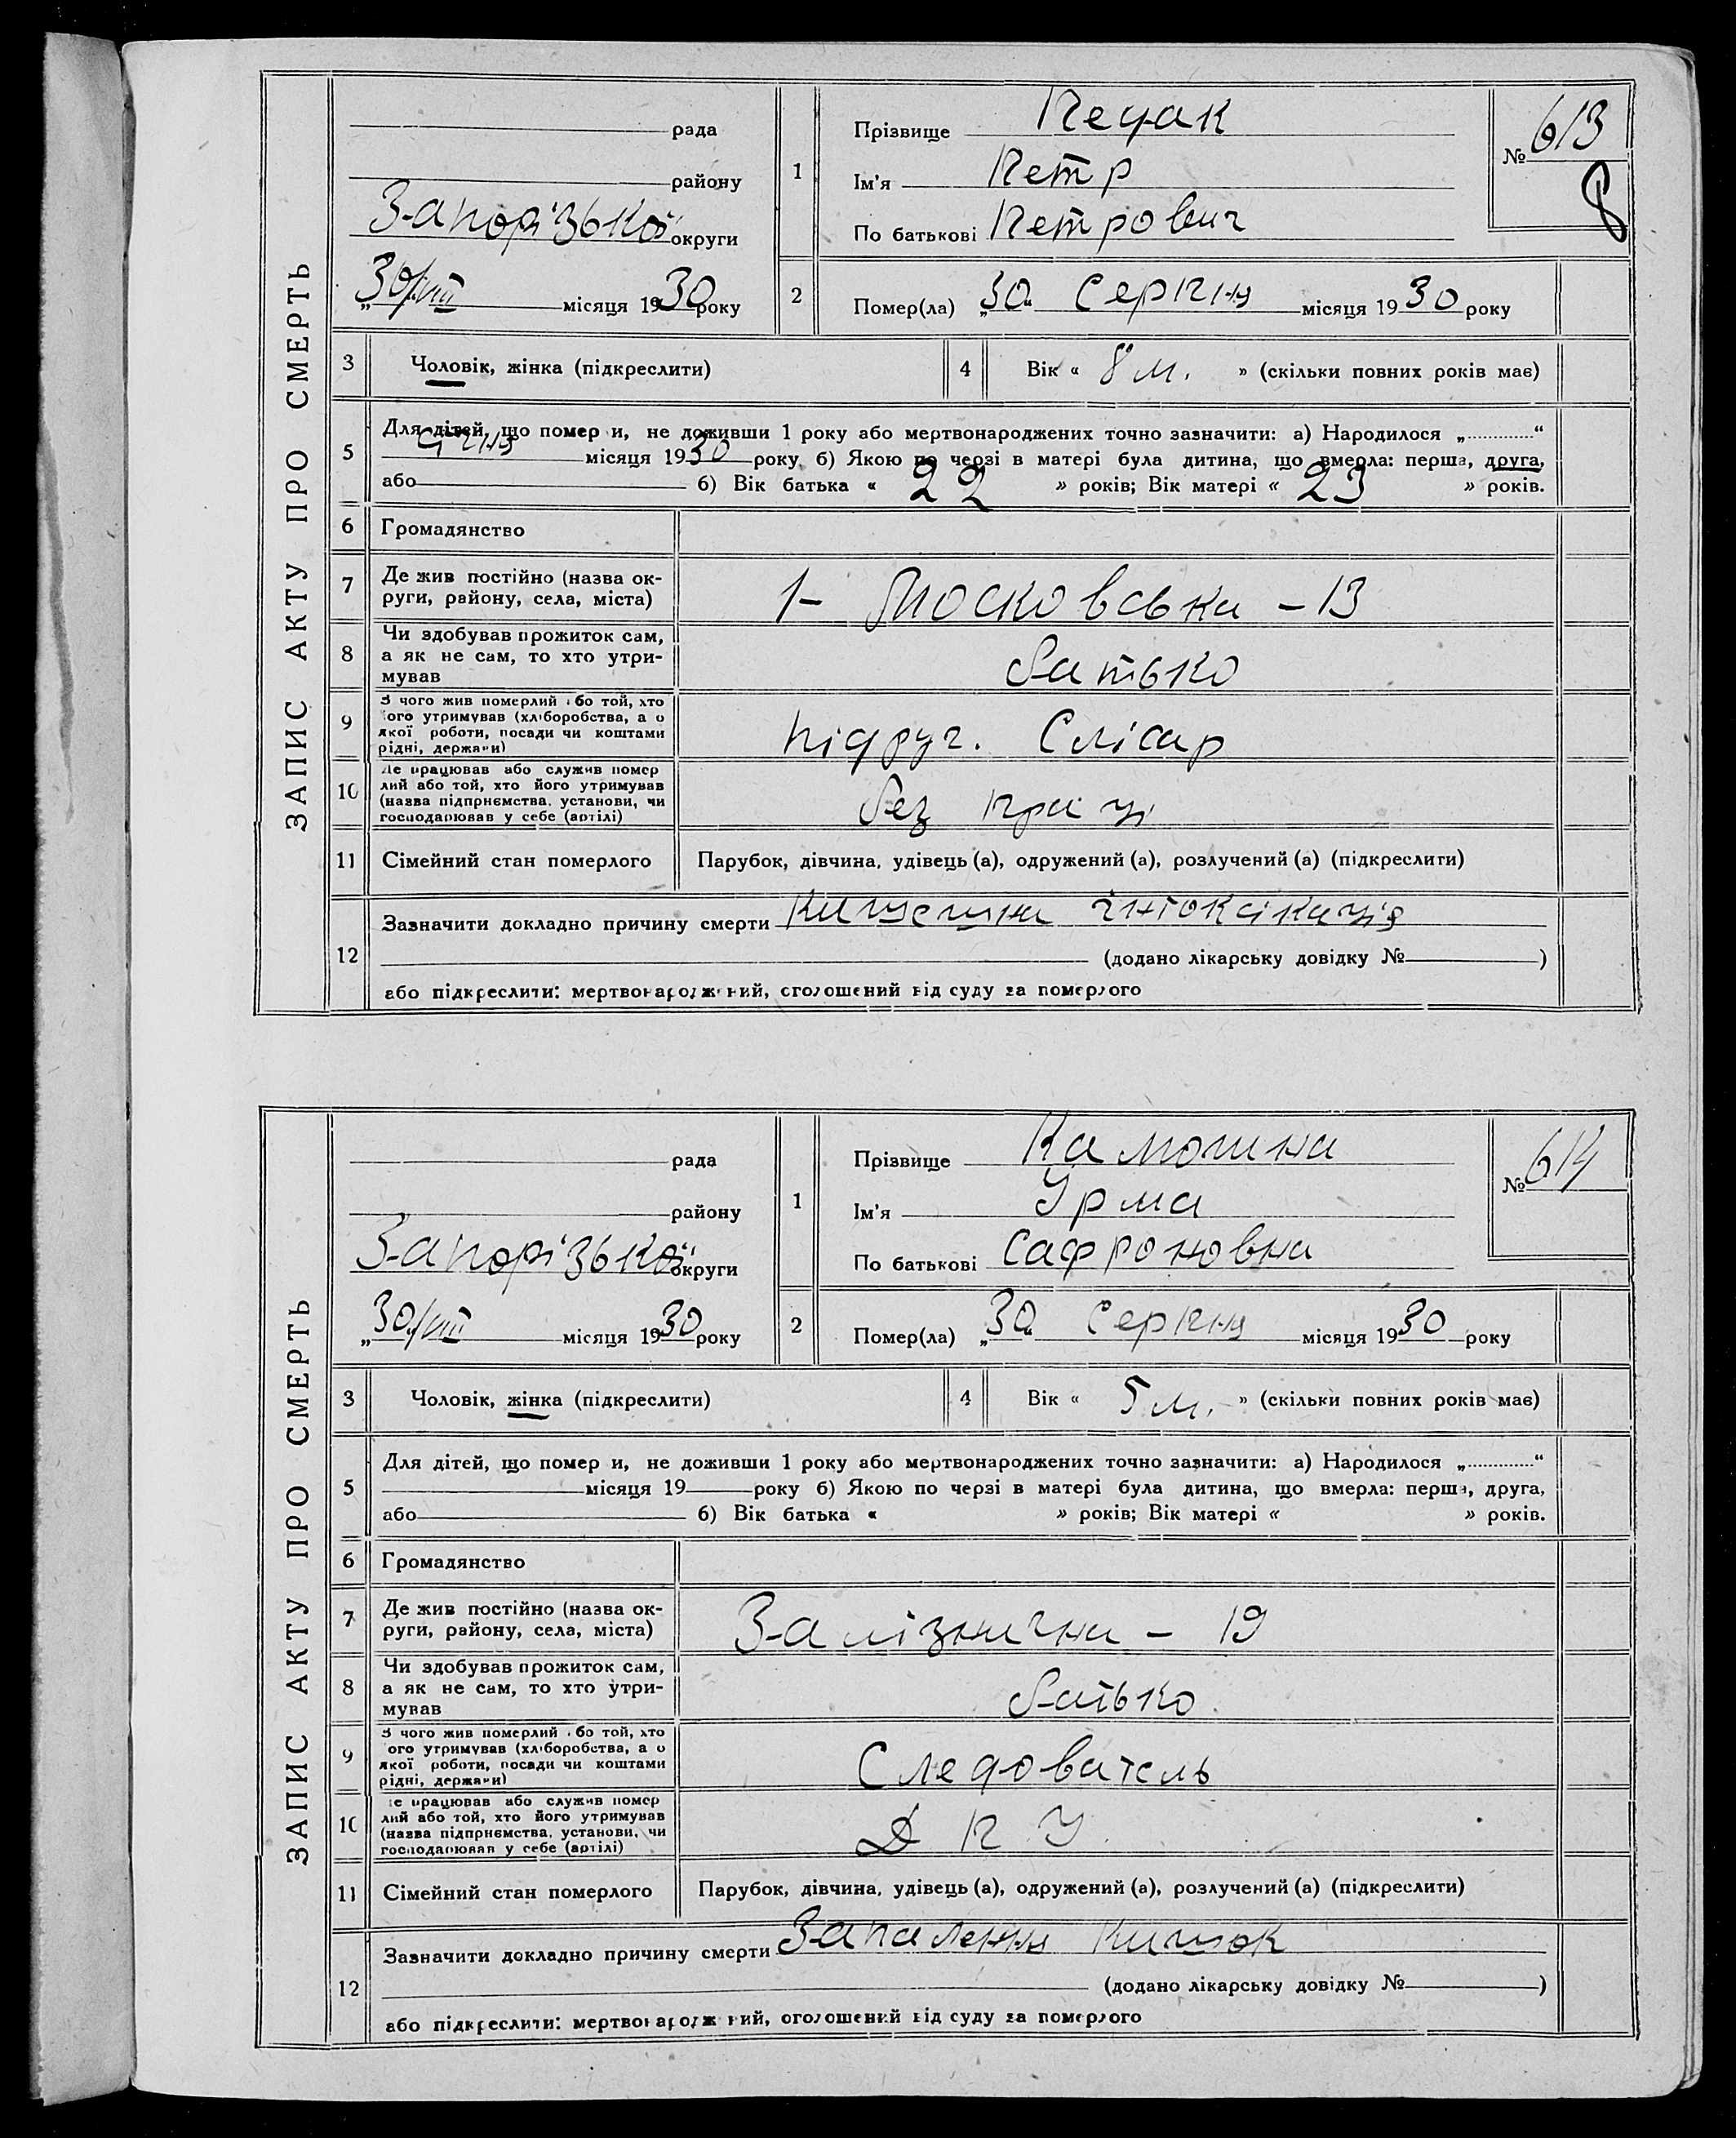 ЗАПИС АКТУ ПРО СМЕРТЬ
рада
району
Запорізької округи
„30/VIII місяця 1930 року
1
Прізвище Педак
Ім'я Петр
По батькові Петрович
№ 613
8
2
Помер(ла) „30“ Серпня місяця 1930 року
3
Чоловік, жінка (підкреслити)
4
Вік « 8 м. » (скільки повних років має)
5
Для дітей, що помер и, не доживши 1 року або мертвонароджених точно зазначити: а) Народилося „............“
Січня місяця 1930 року б) Якою по черзі в матері була дитина, що вмерла: перша, друга,
або б) Вік батька « 22 » років; Вік матері « 23 » років.
6
Громадянство
7
Де жив постійно (назва ок-
руги, району, села, міста)
1- Московська - 13
8
Чи здобував прожиток сам,
а як не сам, то хто утри-
мував
батько
9
З чого жив померлий або той, хто
його утримував (хліборобства, а о
якої роботи, посади чи коштами
рідні, держави)
підруч. Слісар
10
Де працював або служив помер
лий або той, хто його утримував
(назва підприємства, установи, чи
господарював у себе (артілі)
без праці
11
Сімейний стан померлого
Парубок, дівчина, удівець (а), одружений (а), розлучений (а) (підкреслити)
12
Зазначити докладно причину смерти Кишешна інтоксікація
(додано лікарську довідку № )
або підкреслити: мертвонароджений, оголошений від суду за померлого
ЗАПИС АКТУ ПРО СМЕРТЬ
рада
району
Запорізької округи
„30/VIII місяця 1930 року
1
Прізвище Камошна
Ім'я Урма
По батькові Сафроновна
№ 614
2
Помер(ла) „30“ Серпня місяця 1930 року
3
Чоловік, жінка (підкреслити)
4
Вік « 5 м. » (скільки повних років має)
5
Для дітей, що помер и, не доживши 1 року або мертвонароджених точно зазначити: а) Народилося „............“
місяця 19 року б) Якою по черзі в матері була дитина, що вмерла: перша, друга,
або б) Вік батька « » років; Вік матері « » років.
6
Громадянство
7
Де жив постійно (назва ок-
руги, району, села, міста)
Залізнична - 19
8
Чи здобував прожиток сам,
а як не сам, то хто утри-
мував
батько
9
З чого жив померлий або той, хто
його утримував (хліборобства, а о
якої роботи, посади чи коштами
рідні, держави)
Следователь
10
Де працював або служив помер
лий або той, хто його утримував
(назва підприємства, установи, чи
господарював у себе (артілі)
Д П У
11
Сімейний стан померлого
Парубок, дівчина, удівець (а), одружений (а), розлучений (а) (підкреслити)
12
Зазначити докладно причину смерти Запалення Кишок
(додано лікарську довідку № )
або підкреслити: мертвонароджений, оголошений від суду за померлого